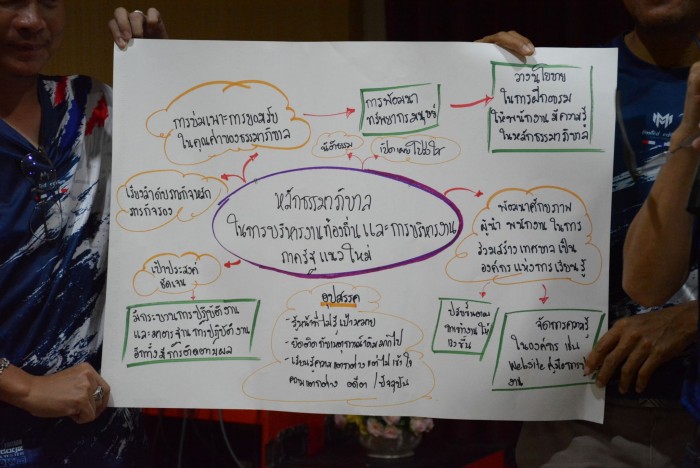 การบ่มเพาะ การยอมรับ
ในคุณค่าของธรรมาภิบาล
การพัฒนา
ทรัพยากรมนุษย์
วางนโยบาย
ในการฝึกอบรม
ให้พนักงาน มีความรู้
ในหลักธรรมาภิบาล
มีส่วนร่วม
เปิดเผย โปร่งใส
เรียงลำดับภารกิจหลัก
ภารกิจรอง
หลักธรรมาภิบาล
ในการบริหารงานท้องถิ่น และการบริหารงาน
ภาครัฐ แนวใหม่
พัฒนาศักยภาพ
ผู้นำ พนักงาน ในการ
ร่วมสร้าง เทศบาล เป็น
องค์กร แห่งการ เรียนรู้
เป้าประสงค์
ชัดเจน
มีกระบวนการปฏิบัติงาน
และมาตรฐานการปฏิบัติงาน
อีกทั้งมีการติดตามผล
อุปสรรค
- รู้หน้าที่ไม่รู้เป้าหมาย
- ยึดติดกับเหตุการณ์เดิมมากไป
- เรียนรู้ความแตกต่าง แต่ไม่เข้าใจ
ความแตกต่าง อดีต / ปัจจุบัน
ให้
จัดการความรู้
ในองค์กร เช่น
Website คู่มือการปฏิบัติ
งาน